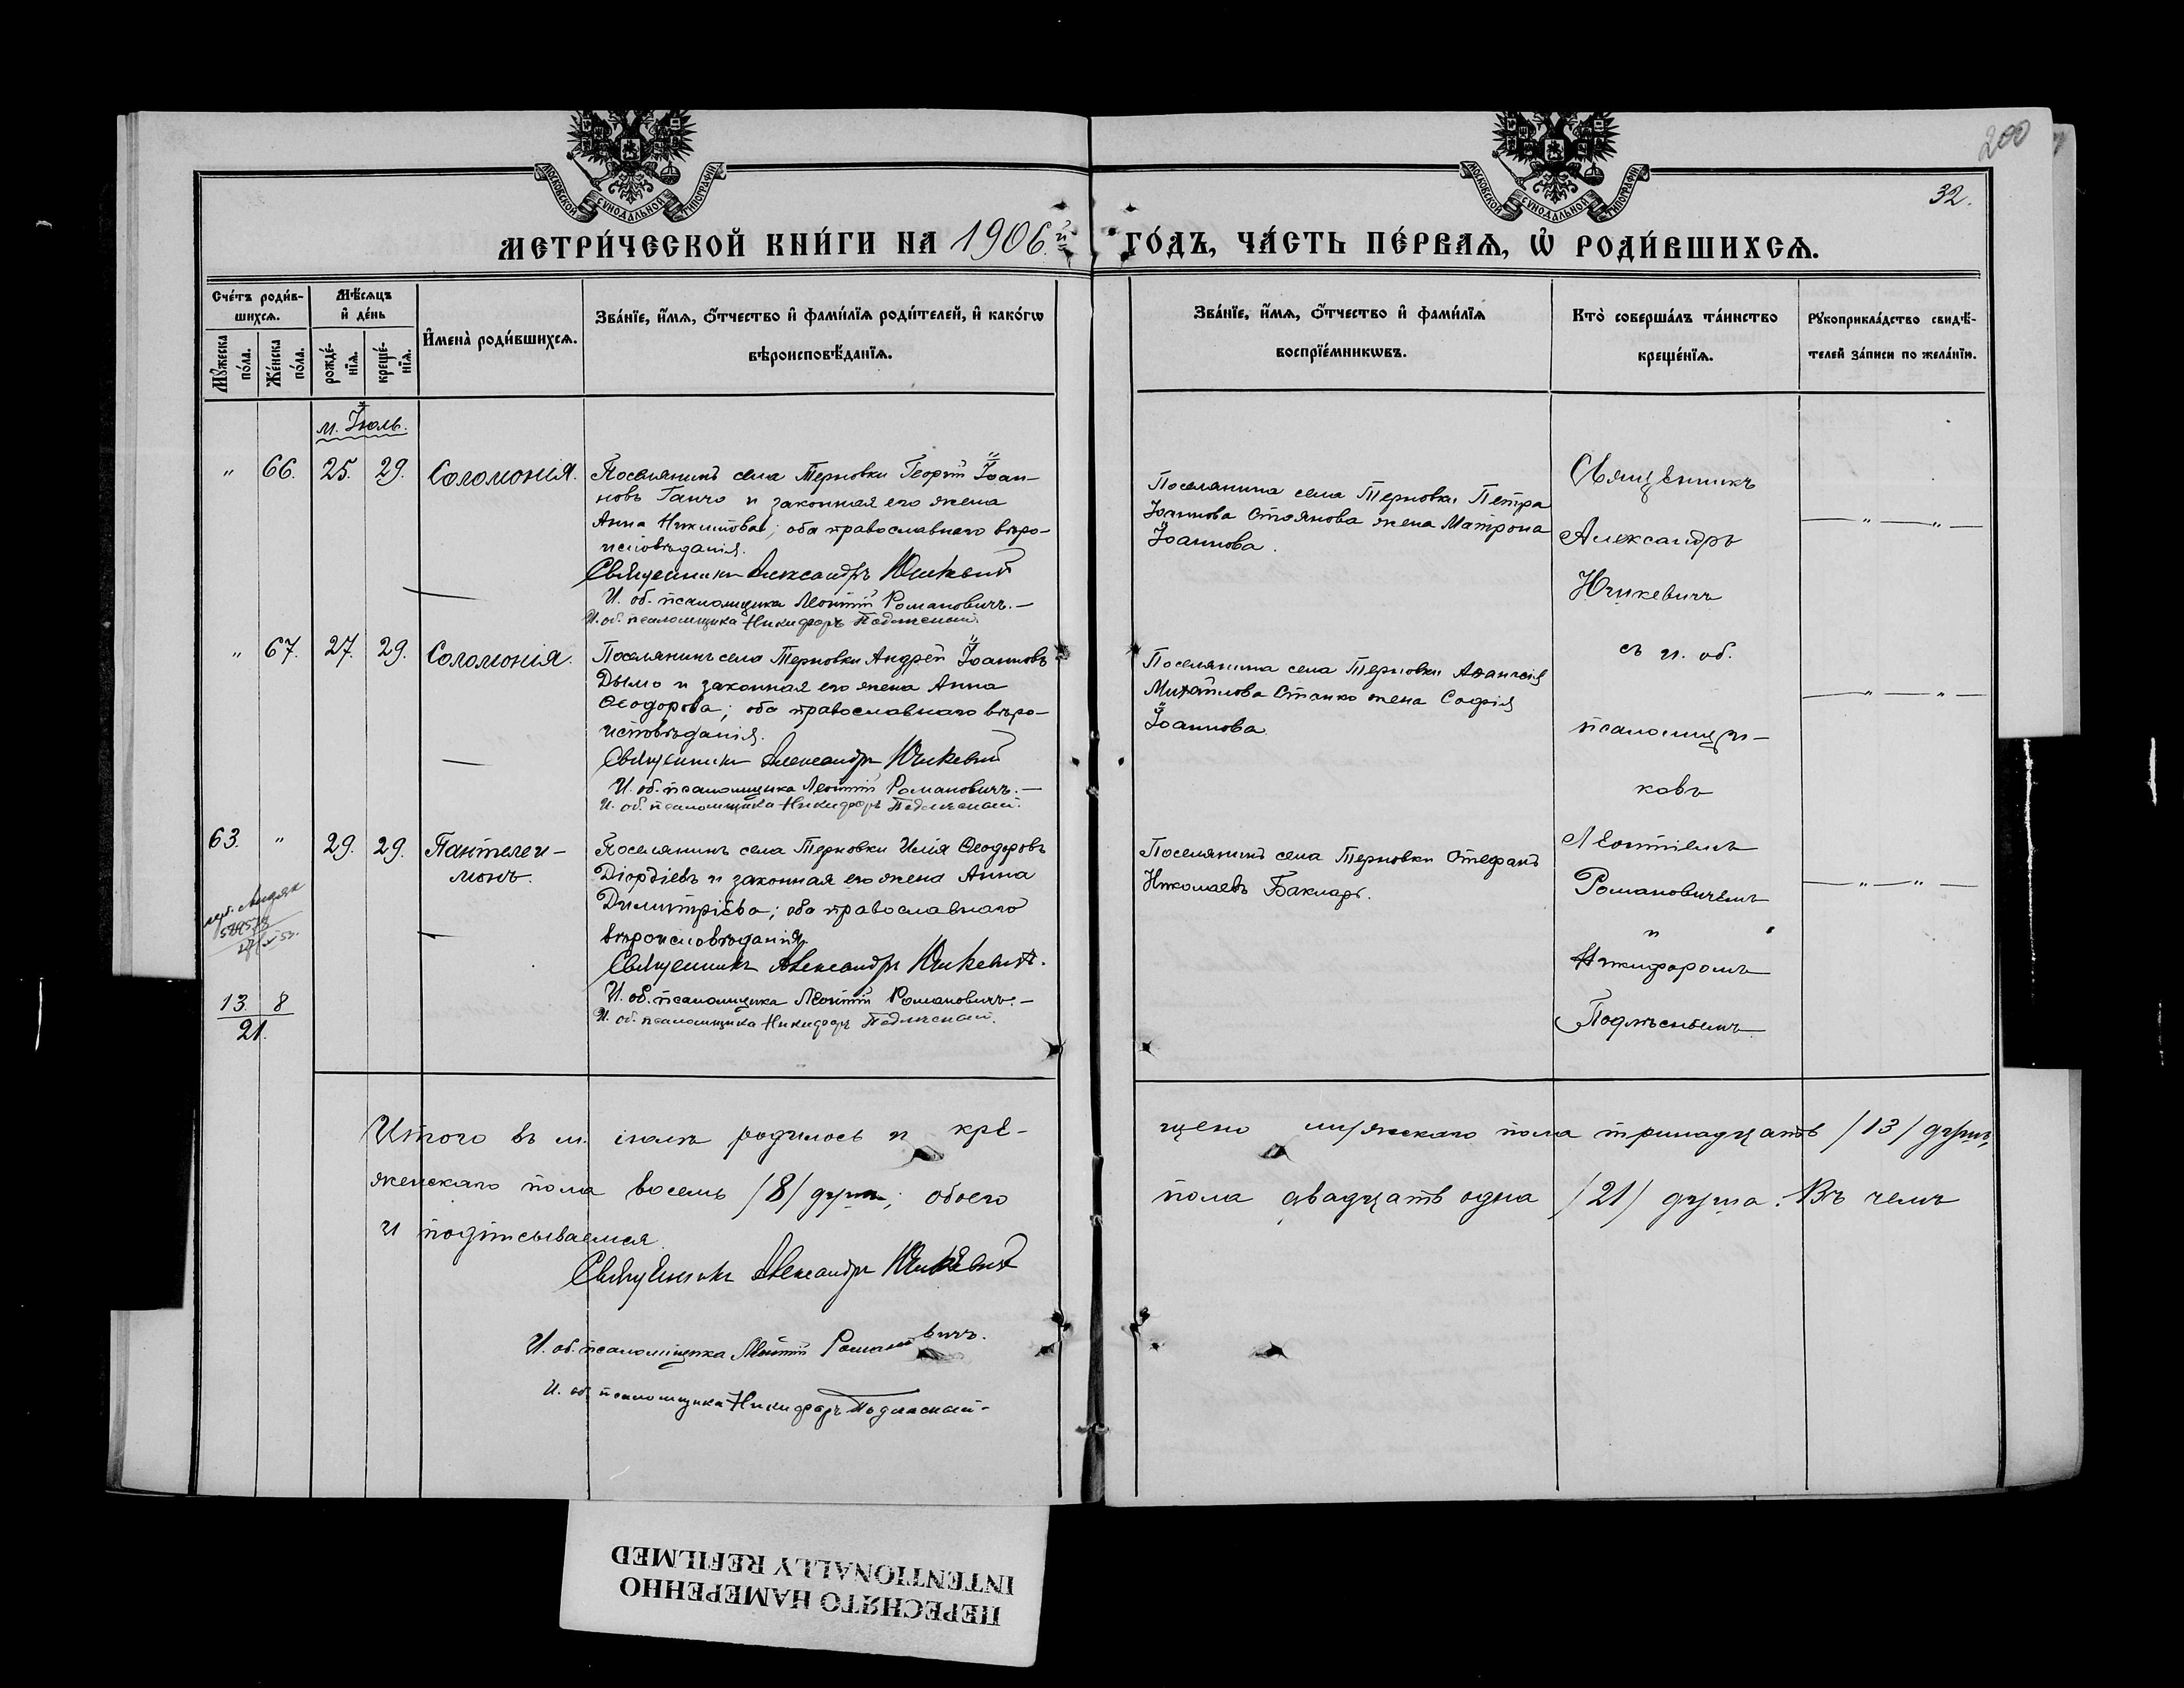 200
32.
МОСКОВСКОЙ СѴНОДАЛЬНОЙ ТИПОГРАФІИ
МОСКОВСКОЙ СѴНОДАЛЬНОЙ ТИПОГРАФІИ
МЕТРИ́ЧЕСКОЙ КНИ́ГИ НА 1906.й ГО́ДЪ, ЧА́СТЬ ПЕ́РВАѦ, Ѡ҆ РОДИ́ВШИХСѦ.
Сче́тъ роди́в-
шихсѧ.
Мꙋ́жеска по́ла.
Же́нска по́ла.
Мѣ́сѧцъ
и҆ де́нь
рожде́-
нїѧ.
креще́-
нїѧ.
И҆мена̀ роди́вшихсѧ.
Зва́нїе, и҆́мѧ, ѻ҆́тчество и҆ фами́лїѧ роди́телей, и҆ како́гѡ
вѣроисповѣ́данїѧ.
Зва́нїе, и҆́мѧ, ѻ҆́тчество и҆ фами́лїѧ
воспрїе́мникѡвъ.
Кто̀ соверша́лъ та́инство
креще́нїѧ.
Рꙋкоприкла́дство свидѣ́-
телей за́писи по жела́нїю.
м. Іюль.
" 66. 25. 29. Соломонія.
Поселянинъ села Терновки Георгій Іоан-
новъ Ганчо и законная его жена
Анна Никитова; оба православнаго вѣро-
исповѣданія.
Священникъ Александръ Юшкевичъ
И. об. псаломщика Леонтій Романовичъ.—
И. об. псаломщика Никифоръ Подлѣсный.
Поселянина села Терновки Петра
Іоаннова Стоянова жена Матрона
Іоаннова.
— " — " —
" 67. 27. 29. Соломонія.
Поселянинъ села Терновки Андрей Іоанновъ
Дымо и законная его жена Анна
Ѳеодорова; оба православнаго вѣро-
исповѣданія.
Священникъ Александръ Юшкевичъ
И. об. псаломщика Леонтій Романовичъ.—
И. об. псаломщика Никифоръ Подлѣсный.
Поселянина села Терновки Аѳанасія
Михайлова Станко жена Софія
Іоаннова
— " — " —
63. " 29. 29. Пантелеи-
монъ.
Поселянинъ села Терновки Илія Ѳеодоровъ
Діордіевъ и законная его жена Анна
Димитріева; оба православнаго
вѣроисповѣданія.
Священникъ Александръ Юшкевичъ.
И. об. псаломщика Леонтій Романовичъ.—
И. об. псаломщика Никифоръ Подлѣсный.
Поселянинъ села Терновки Стефанъ
Николаевъ Бакларъ.
— " — " —
Священникъ
Александръ
Юшкевичъ
съ и. об.
псаломщи-
ковъ
Леонтіемъ
Романовичемъ
и
Никифоромъ
Подлѣснымъ
13. 8
21.
Итого въ м. іюлѣ родилось и кре-
щено мужскаго пола тринадцать /13/ душъ,
женскаго пола восемь /8/ душъ; обоего
пола двадцать одна /21/ душа. Въ чемъ
и подписываемся
Священникъ Александръ Юшкевичъ
И. об. псаломщика Леонтій Романовичъ.
И. об. псаломщика Никифоръ Подлѣсный.
ПЕРЕСНЯТО НАМЕРЕННО
INTENTIONALLY REFILMED